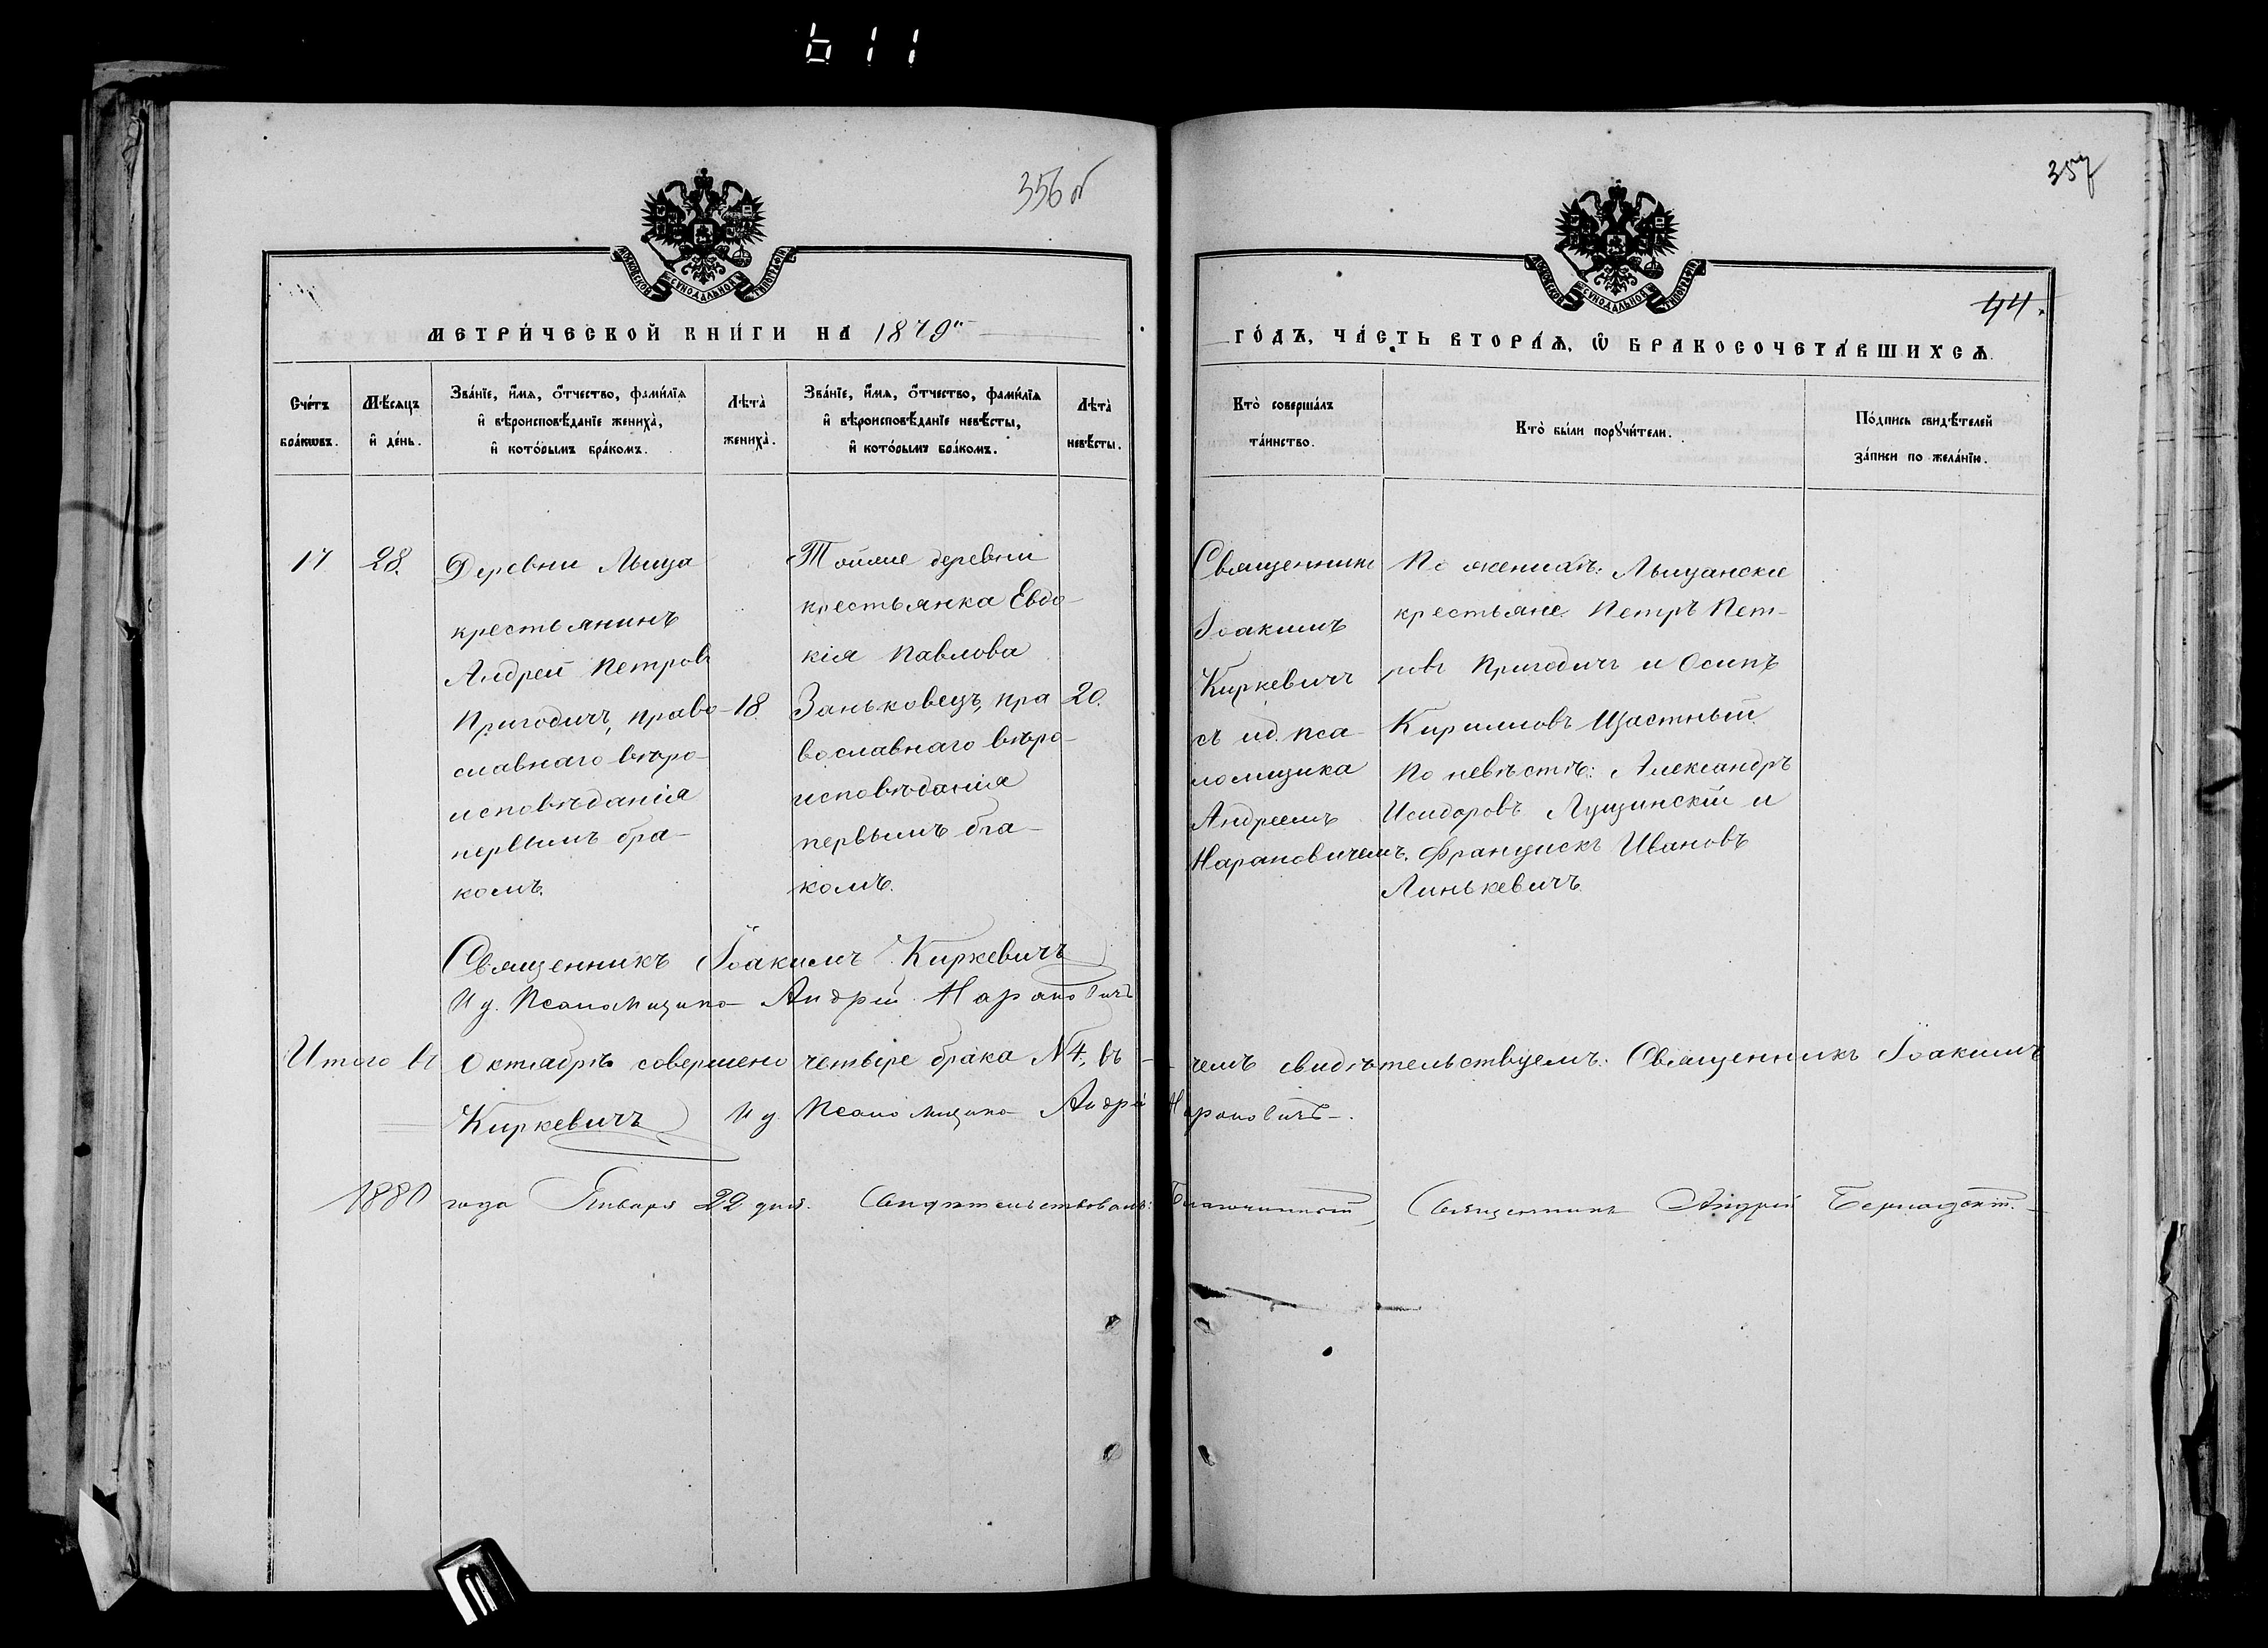 611
356 об
357
МОСКОВСКОЙ СѴНОДАЛЬНОЙ ТИПОГРАФІИ
МОСКОВСКОЙ СѴНОДАЛЬНОЙ ТИПОГРАФІИ
44.
МЕТРИ́ЧЕСКОЙ КНИ́ГИ НА 1879й
ГО́ДЪ, ЧА́СТЬ ВТОРА́Ѧ, Ѽ БРАКОСОЧЕТА́ВШИХСѦ.
Сче́тъ
бра́кωвъ.
Мѣ́сяцъ
и҆ де́нь.
Зва́нїе, и҆́мѧ, ѻ҆́тчество, фами́лїѧ
и҆ вѣроисповѣ́данїе жениха̀,
и҆ кото́рымъ бра́комъ.
Лѣта̀
жениха̀.
Зва́нїе, и҆́мѧ, ѻ҆́тчество, фами́лїѧ
и҆ вѣроисповѣ́данїе невѣ́сты,
и҆ кото́рымъ бра́комъ.
Лѣта̀
невѣ́сты.
Кто̀ соверша́лъ
та́инство.
Кто̀ бы́ли порꙋчи́тели.
По́дпись свидѣ́телей
за́писи по жела́нїю.
17
28.
Деревни Лыща
крестьянинъ
Андрей Петровъ
Пригодичъ, право-
славнаго вѣро-
исповѣданія
первымъ бра-
комъ.
18.
Тойже деревни
крестьянка Евдо-
кія Павлова
Заньковецъ, пра
вославнаго вѣро-
исповѣданія
первымъ бра-
комъ.
20.
Священникъ
Іоакимъ
Киркевичъ
съ ид. пса-
ломщика
Андреемъ
Нарановичемъ.
По женихѣ: Лыщанскіе
крестьяне Петръ Пет-
ровъ Пригодичъ и Осипъ
Кирилловъ Щастный
По невѣстѣ: Александръ
Исидоровъ Лущинскій и
Францискъ Ивановъ
Линькевичъ.
Священникъ Іоакимъ Киркевичъ
И д. Псаломщика Андрей Нарановичъ
Итого въ Октябрѣ совершено четыре брака N4, въ - чемъ свидѣтельствуемъ: Священникъ Іоакимъ
Киркевичъ И д. Псаломщика Андрей Нарановичъ.
1880 года Января 22 дня. Свидѣтельствовалъ: Благочинный, Священникъ Андрей